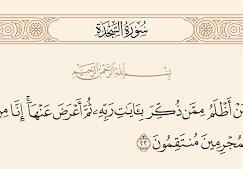 سُورَةُ السَّجْدَةِ
بِسْمِ اللَّهِ الرَّحْمَٰنِ الرَّحِيمِ
أَظْلَمُ مِمَّن ذُكِّرَ بِـَٔايَٰتِ رَبِّهِۦ ثُمَّ أَعْرَضَ عَنْهَآ ۚ إِنَّا
ٱلْمُجْرِمِينَ مُنتَقِمُونَ ٢٢